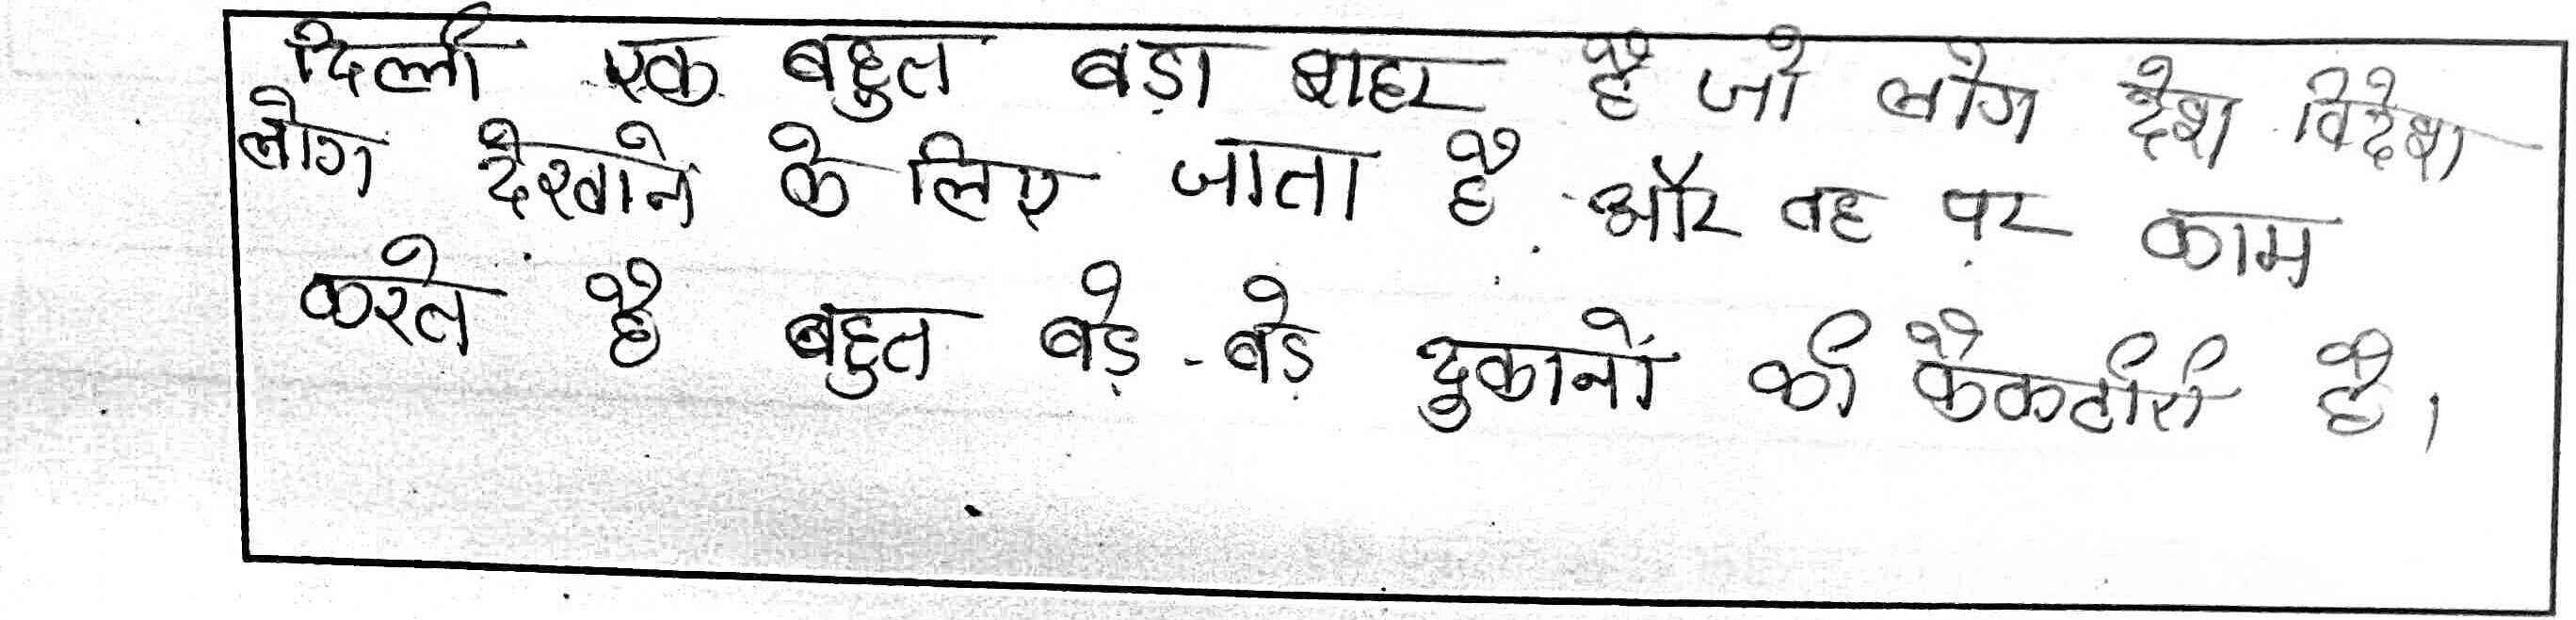 दिल्ली एक बहुत बड़ा शहर है जो लोग देश विदेश
लोग देखाने के लिए जाता है और वह पर काम
करते है बहुत बड़े-बड़े दुकानों की कैकटारी है।